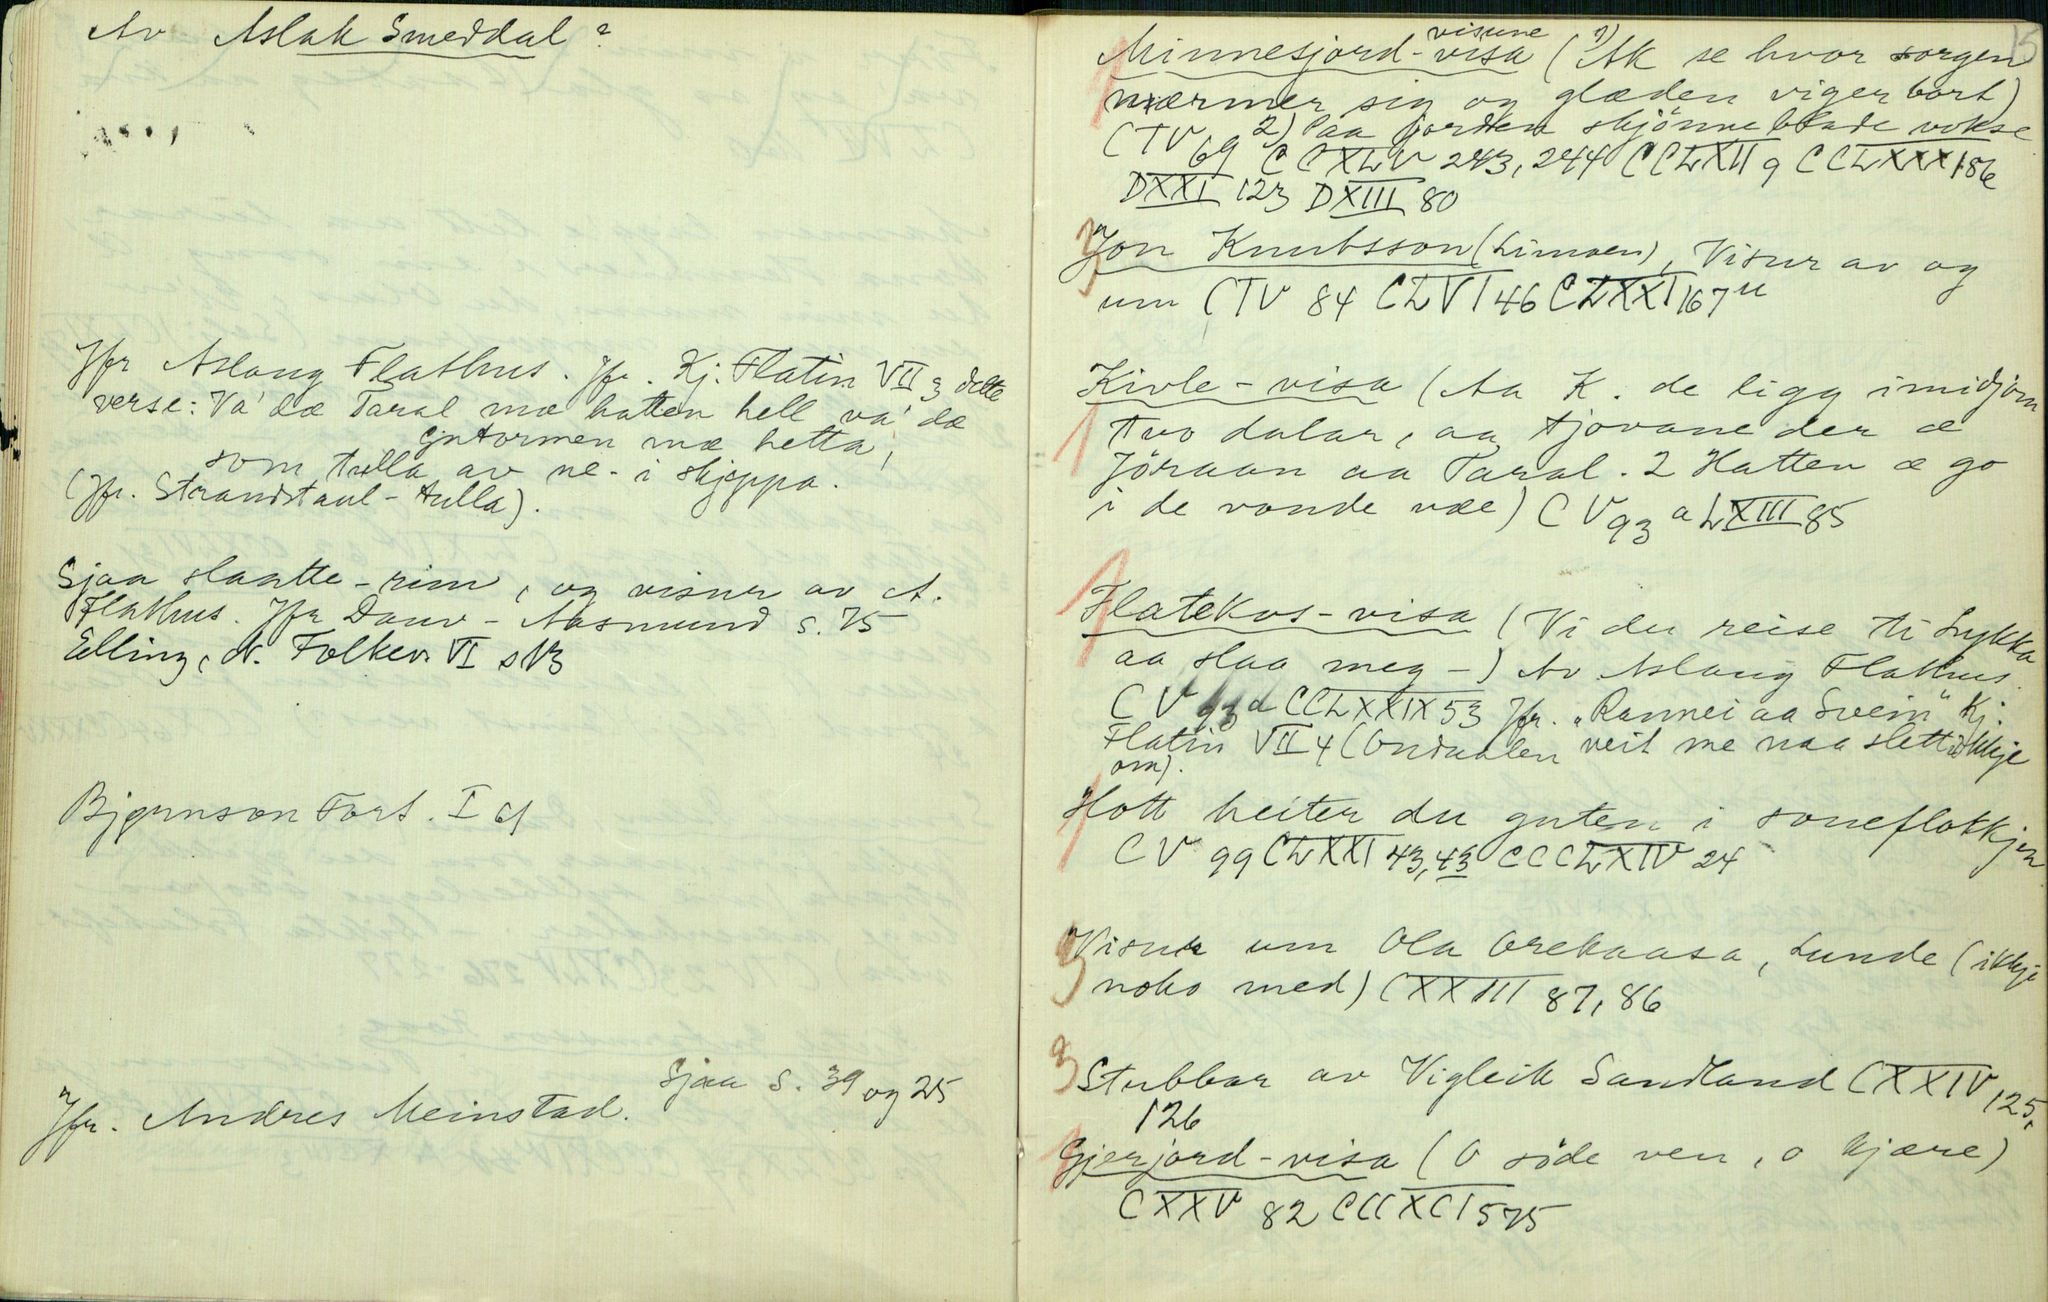 Av Aslak Smeddal?
Jfr Aslaug Flathus. Jfr. Kj. Flatin VII 3 dette
verse: Va' dæ Taral mæ hatten hell va' dæ
Gutormen mæ hetta,
som tulla av ne- i skjeppa.
(Jfr. Strandstaul-tulla).
Sjaa slaatte-rim, og visur av A.
Flathus. Jfr Dauv-Aasmund s. 75
Elling, N. Folkev. VI s 13
Bjørnson Fort. I 61
Sjaa s. 39 og 25
Jfr. Andres Meinstad.
15
visune
Minnesjord-visa (1) Ak se hvor sorgen
nærmer sig og glæden viger bort)
2) Paa jorden skjönne blade vokse
CIV 69 CCXLV 243, 244 CCLXII 9 CCLXXXI 86
DXXI 123 DXIII 80
Jon Knutsson (Limoen), Visur av og
um CIV 84 CLVI 46 CLXXI 167 u
Kivle-visa (Aa K. de ligg imidjom
tvo dalar, aa tjovane der æ
Jöraan aa Taral. 2 Hatten æ go
i de vonde væe) CV 93 a LXIII 85
Flatekos-visa (Vi du reise ti Lykka
aa slaa meg -) Av Aslaug Flathus.
CV 93 a CCLXXIX 53 Jfr. "Rannei aa Svein" Kj.
Flatin VII 4 (Ondaalen veit me naa slett ikkje
om).
Hott heiter du guten i soneflokkjen
CV 99 CLXXI 43, 43 CCCLXIV 24
Visur um Ola Orekaasa, Lunde (ikkje
noko med) CXXIII 87, 86
Stubbar av Vigleik Sandland CXXIV 125,
126
Gjerjord-visa (O söde ven, o kjære)
CXXV 82 CCCXCI 575